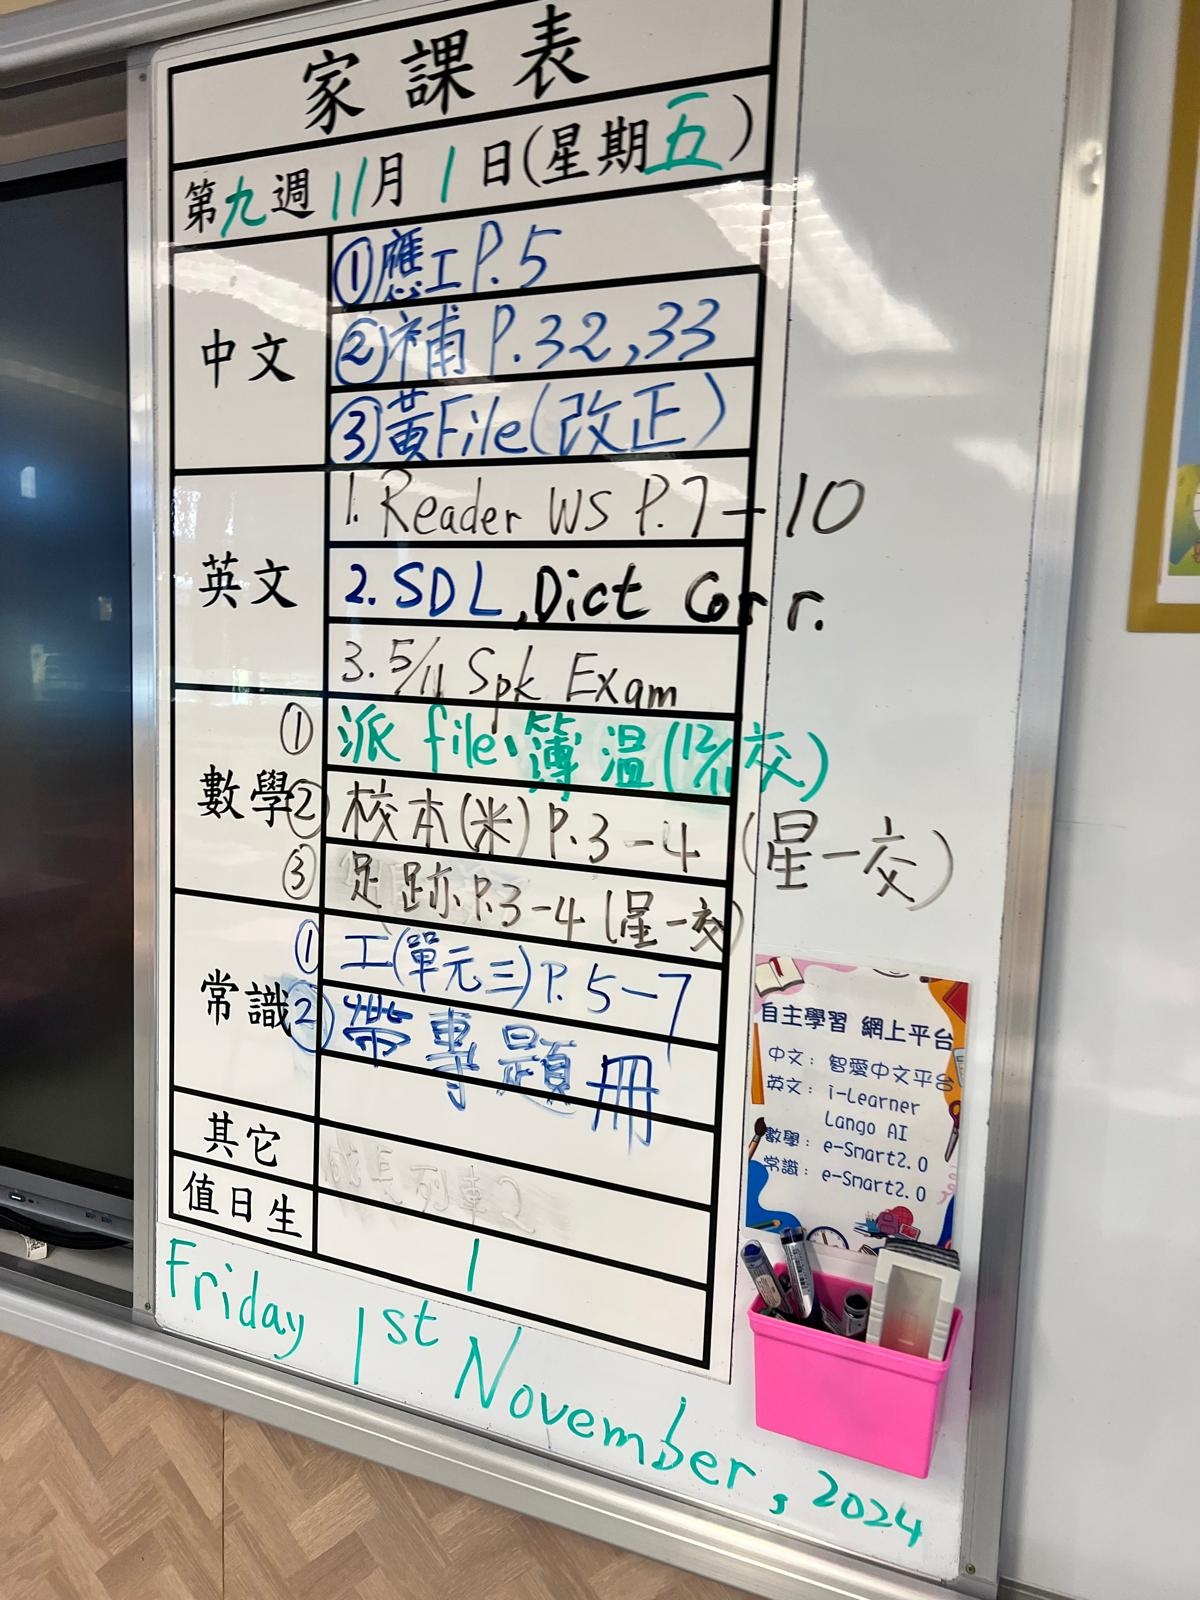 家課表
第九週11月1日(星期五)
中文
①應工P.5
②補P.32,33
③黃File(改正)
英文
1. Reader WS P.7-10
2. SDL, Dict Corr.
3. 5/11 Spk Exam
數學
① 派file、簿溫(12/11交)
② 校本(米)P.3-4 (星一交)
③ 足跡P.3-4 (星一交)
常識
① 工(單元三)P.5-7
② 帶專題冊
其它
成長列車2
值日生
1
Friday 1st November, 2024
自主學習 網上平台
中文: 智愛中文平台
英文: i-Learner
Lango AI
數學: e-Smart2.0
常識: e-Smart2.0